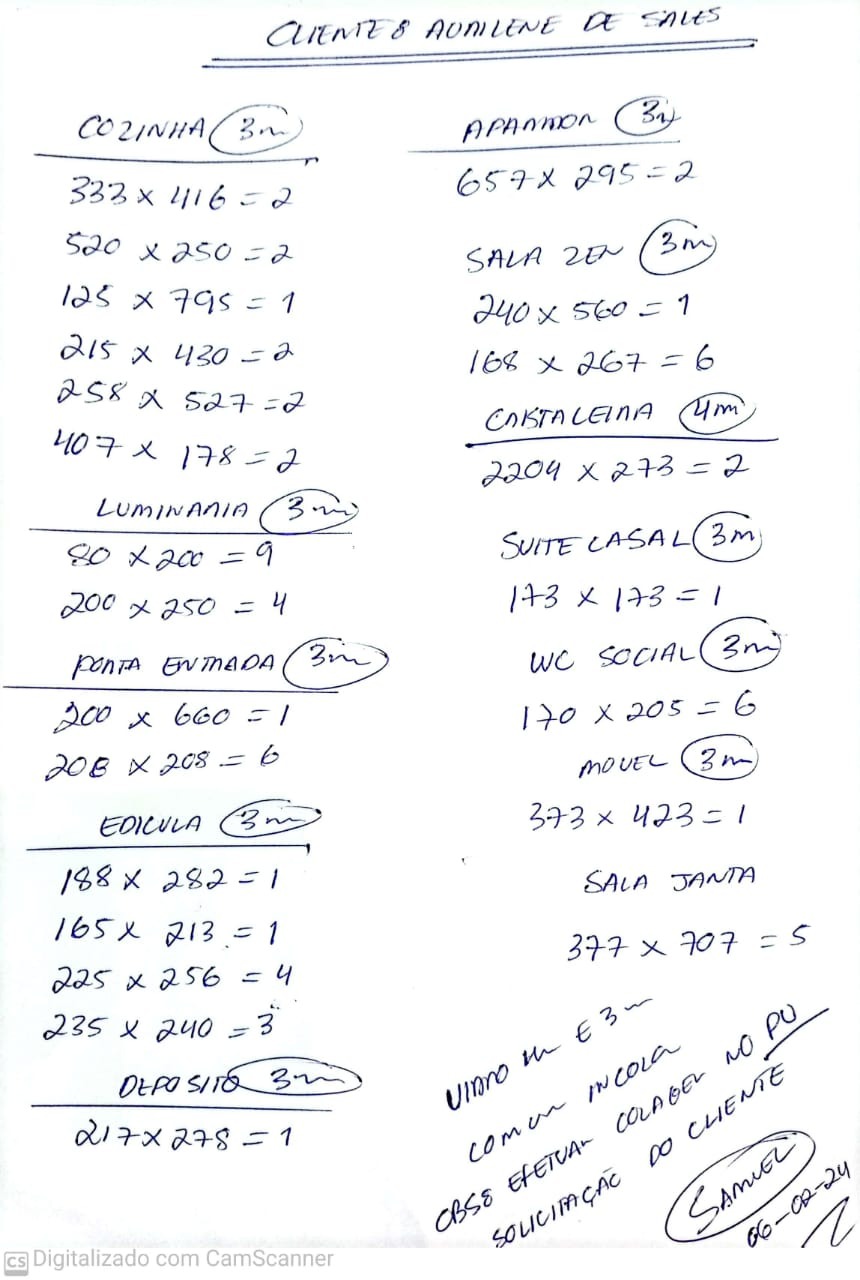 CLIENTE: AURILENE DE SALES
COZINHA 3m
333 x 416 = 2
520 x 250 = 2
125 x 795 = 1
215 x 430 = 2
258 x 527 = 2
407 x 178 = 2
LUMINARIA 3m
80 x 200 = 9
200 x 250 = 4
PORTA ENTRADA 3m
200 x 660 = 1
208 x 208 = 6
EDICULA 3m
188 x 282 = 1
165 x 213 = 1
225 x 256 = 4
235 x 240 = 3
DEPOSITO 3m
217 x 278 = 1
APARADOR 3m
657 x 295 = 2
SALA ZEN 3m
240 x 560 = 1
168 x 267 = 6
CRISTALEIRA 4m
2204 x 273 = 2
SUITE CASAL 3m
173 x 173 = 1
WC SOCIAL 3m
170 x 205 = 6
MOVEL 3m
373 x 423 = 1
SALA JANTA
377 x 707 = 5
VIDRO 4m E 3m
COMUM INCOLOR
OBS: EFETUAR COLAGEM NO PU
SOLICITAÇÃO DO CLIENTE
SAMUEL
06-02-24
CS Digitalizado com CamScanner